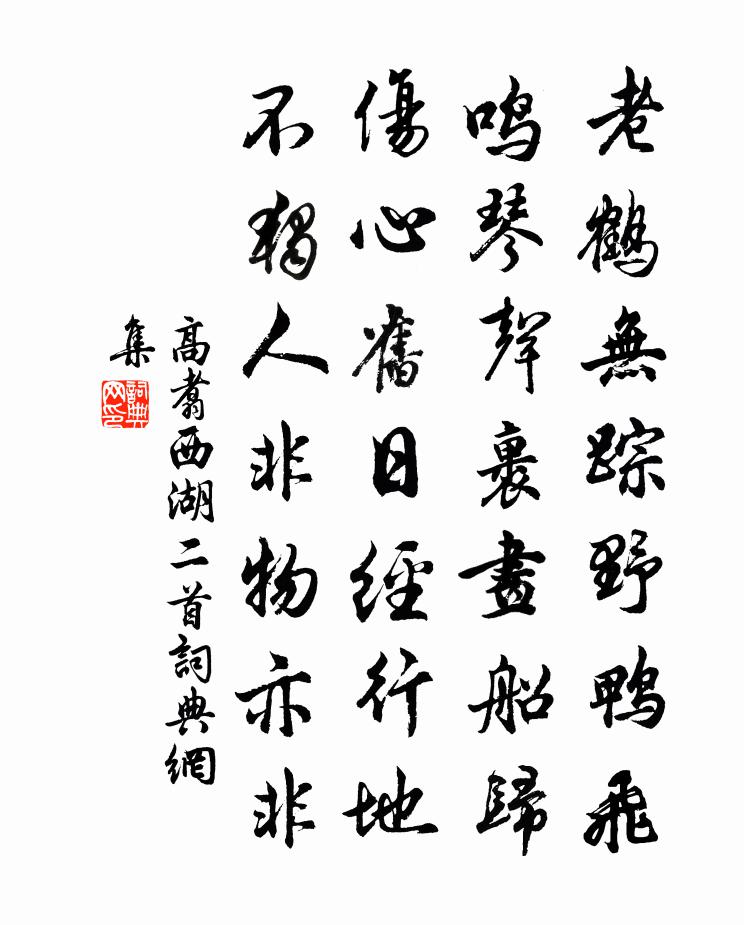 老鶴無踪野鴨飛
鳴琴聲裏畫船歸
傷心舊日經行地
不獨人非物亦非
高翥西湖二首詞典網
集
詞典網印